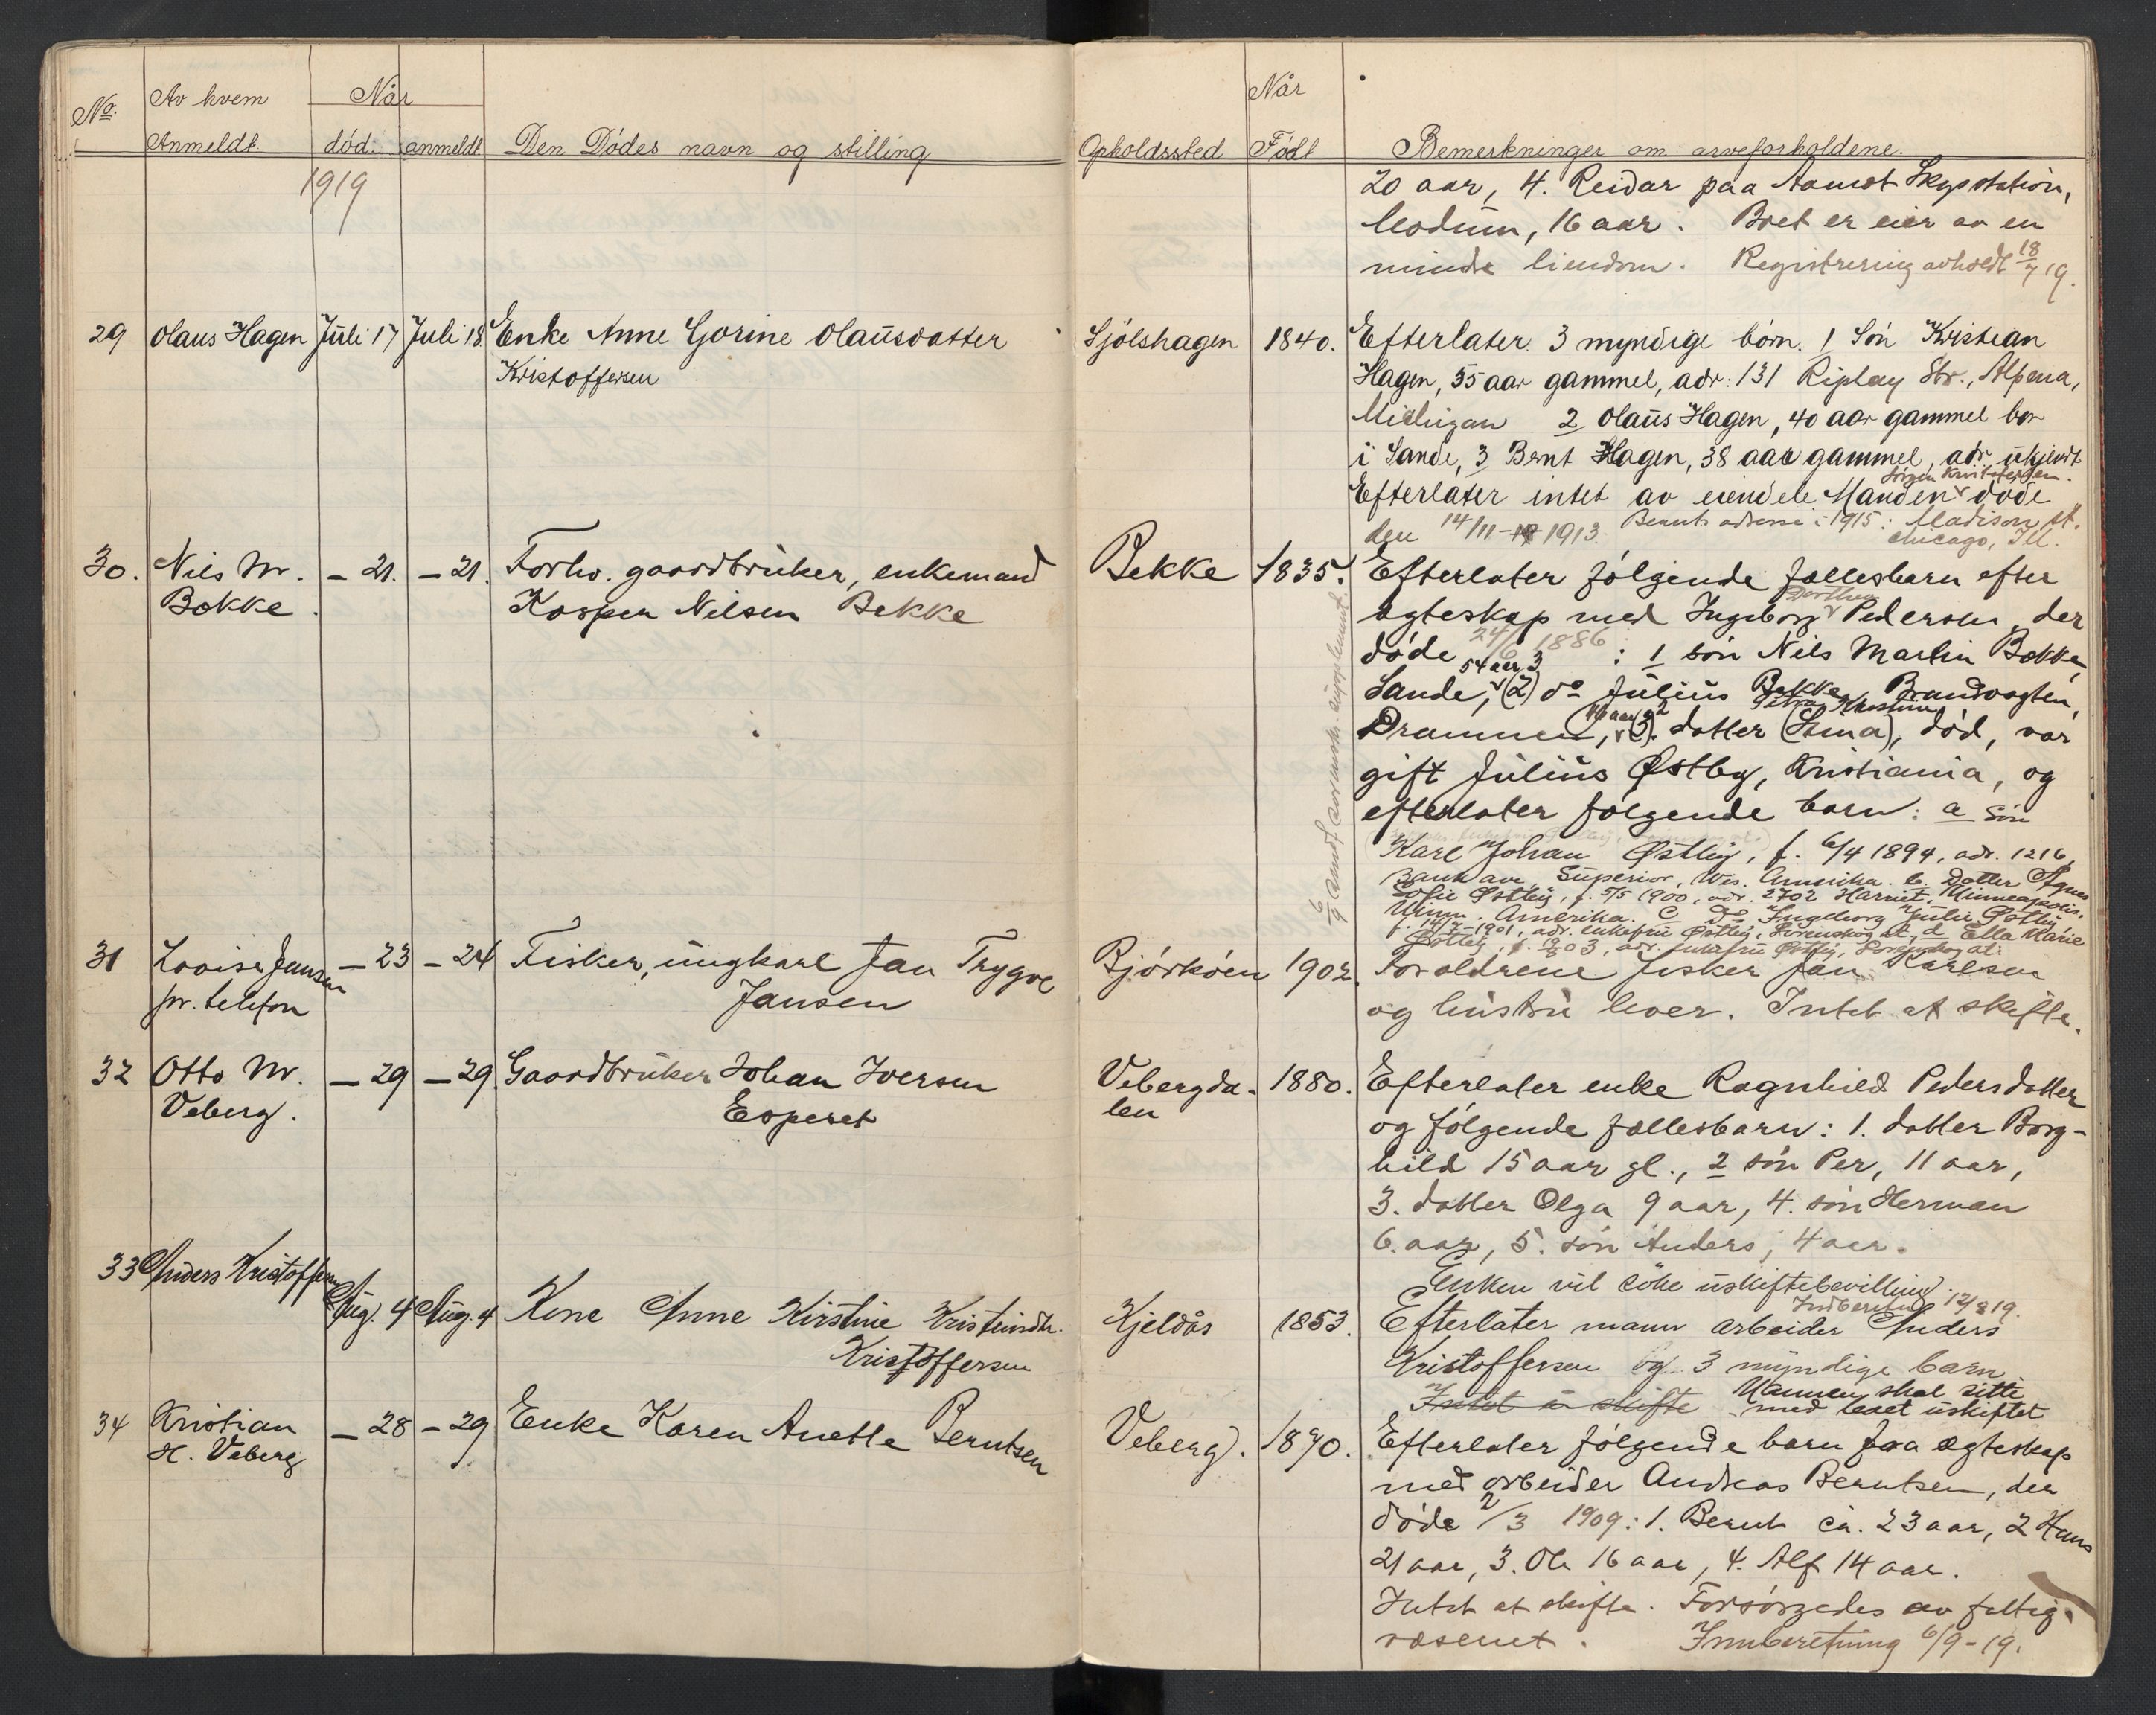 No. Av hvem Anmeldt. Når død. anmeldt. Den Dödes navn og stilling Opholdssted Når Född Bemerkninger om arveforholdene.
1919
20 aar, 4. Reidar paa Aamot Skysstation,
Modum, 16 aar. Boet er eier av en
mindre eiendom. Registrering avholdt 18/7 19.
29 Olaus Hagen Juli 17 Juli 18 Enke Anne Gorine Olausdatter
Kristoffersen
Sjölshagen 1840. Efterlater 3 myndige börn. 1 Sön Kristian
Hagen, 55 aar gammel, adr: 131 Riplay Str., Alpena,
Michigan 2 Olaus Hagen, 40 aar gammel bor
i Sande, 3 Bernt Hagen, 38 aar gammel, adr. ukjendt
Efterlater intet av eiendele. Manden Jörgen Kristoffersen döde
den 14/11-1913. Bernts adresse i 1915: Madison St.
Chicago, Ill.
30. Nils M. - 21. - 21. Forhv. gaardbruker, enkemand
Bekke. Kasper Nilsen Bekke
Bekke 1835. Efterlater fölgende fællesbarn efter
egteskap med Ingeborg Dorthea Pedersen, der
döde 24/6 1886: 1 sön Nils Martin Bekke,
Sande, 54 aar, 3 (2) do Julius Bekke, Brandvagten,
Drammen, 46 aar, 2 (3). datter Petra Kristine (Stina), död, var
gift Julius Østby, Kristiania, og
efterlater fölgende barn: a Sön
Karl Johan Østby, f. 6/4 1894, adr. 1216,
Bank ave, Superior, Wis. Amerika. b. Datter Agnes
Sofie Østby, f. 5/5 1900, adr. 2702 Harriet, Minneapolis.
Minn. Amerika. c do Ingeborg Julie Østby
f. 14/7-1901, adr. enkefru Østby, Lorenskog st, d Ella Marie
Østby, f. 03, adr. enkefru Østby, Lorenskog st.
6/9 sendt arvemeld. supplement.
31 Lovise Jansen - 23 - 24 Fisker, ungkarl Jan Trygve
pr. telefon Jansen
Bjórköen 1902. Foreldrene fisker Jan Karlsen
og hustru lever. Intet at skifte.
32 Otto M. - 29 - 29. Gaardbruker Johan Iversen
Veberg. Esperet
Vebergda-
len 1880. Efterlater enke Ragnhild Pedersdatter
og fölgende fællesbarn: 1. datter Borg-
hild 15 aar gl., 2 sön Per, 11 aar,
3. datter Olga 9 aar, 4. sön Herman
6. aar, 5. sön Anders, 4 aar.
Enken vil söke uskiftebevilling.
Indberetn. 12/8 19.
33 Anders Kristoffersen Aug. 4 Aug. 4 Kone Anne Kirstine Kristensdtr.
Kristoffersen
Kjeldås 1853. Efterlater mann arbeider Anders
Kristoffersen og 3 myndige barn
Intet å skifte Mannen skal sitte
med boet uskiftet
34 Kristian - 28 - 29 Enke Karen Anette Berntsen
H. Veberg
Veberg. 1870. Efterlater fölgende barn fra egteskap
med arbeider Andreas Berntsen, der
döde 2/3 1909: 1. Bernt ca. 23 aar, 2 Hans
21 aar, 3. Ole 16 aar, 4. Alf 14 aar.
Intet at skifte. Forsörgedes av fattig-
væsenet. Innberetning 6/9-19.